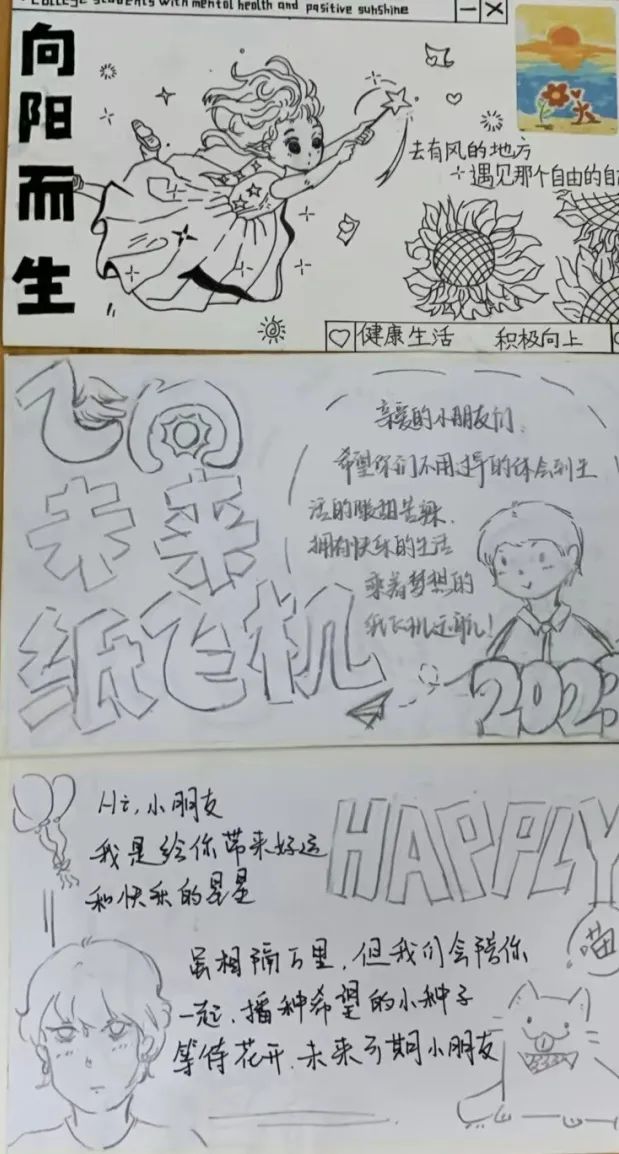 College students with mental health and pasitive sunshine
向
阳
而
生
去有风的地方
遇见那个自由的自
健康生活 积极向上
飞向
未来
纸飞机
亲爱的小朋友们,
希望你们不用过早的体会到生
活的酸甜苦辣,
拥有快乐的生活
乘着梦想的
纸飞机远航!
202
Hi,小朋友
我是给你带来好运
和快乐的星星
HAPPLY
喵
虽相隔万里,但我们会陪你
一起,播种希望的小种子
等待花开,未来可期小朋友